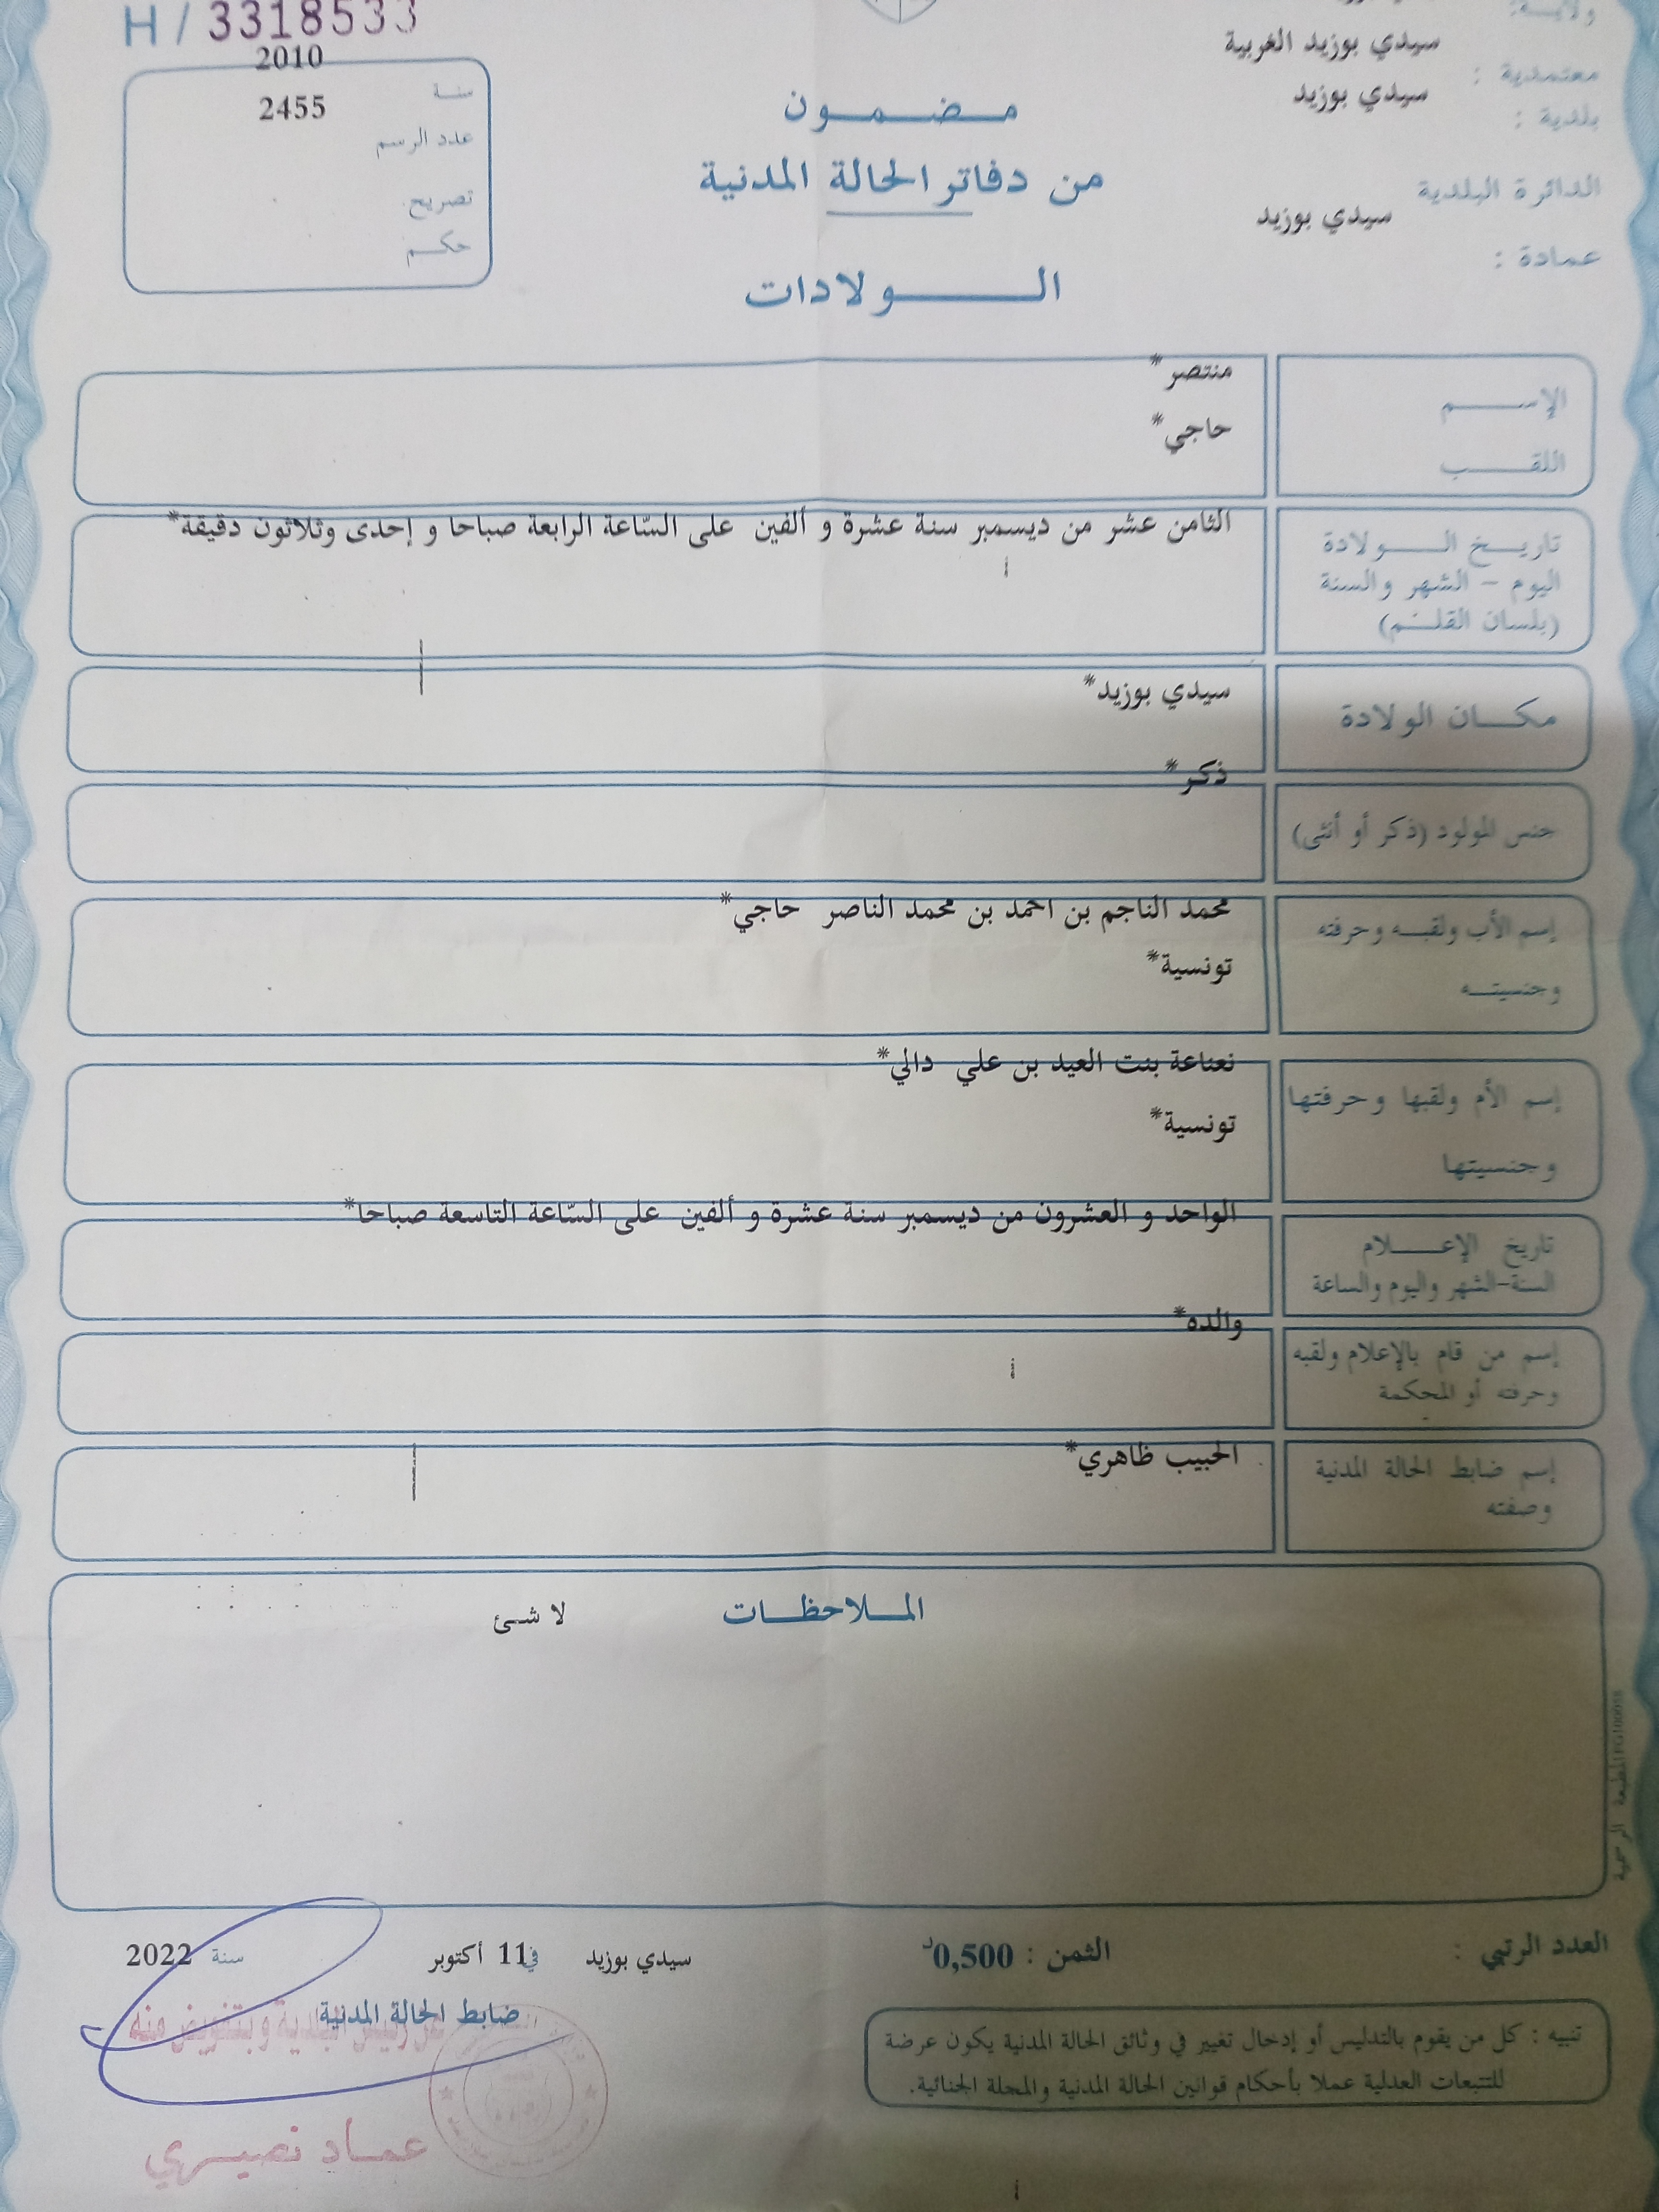 H / 3318533
ولايــة:
سيدي بوزيد الغربية
معتمدية :
سيدي بوزيد
بلدية :
الدائرة البلدية
سيدي بوزيد
عمادة :
2010
سنة
2455
عدد الرسم
تصريح
حكم
مضمون
من دفاتر الحالة المدنية
الولادات
الإسم
منتصر*
اللقب
حاجي*
تاريخ الولادة
اليوم - الشهر والسنة
(بلسان القلم)
الثامن عشر من ديسمبر سنة عشرة و ألفين على السّاعة الرابعة صباحا و إحدى وثلاثون دقيقة*
مكان الولادة
سيدي بوزيد*
جنس المولود (ذكر أو أنثى)
ذكر*
إسم الأب ولقبه وحرفته
وجنسيته
محمد الناجم بن احمد بن محمد الناصر حاجي*
تونسية*
إسم الأم ولقبها وحرفتها
وجنسيتها
نعناعة بنت العيد بن علي دالي*
تونسية*
تاريخ الإعلام
السنة-الشهر واليوم والساعة
الواحد و العشرون من ديسمبر سنة عشرة و ألفين على السّاعة التاسعة صباحا*
إسم من قام بالإعلام ولقبه
وحرفته أو المحكمة
والده*
إسم ضابط الحالة المدنية
وصفته
الحبيب ظاهري*
الملاحظات
لا شئ
العدد الرتبي :
الثمن : 0,500د
سيدي بوزيد في 11 أكتوبر سنة 2022
ضابط الحالة المدنية
عن رئيس البلدية وبتفويض منه
عماد نصيري
تنبيه : كل من يقوم بالتدليس أو إدخال تغيير في وثائق الحالة المدنية يكون عرضة
للتتبعات العدلية عملا بأحكام قوانين الحالة المدنية والمجلة الجنائية.
المطبعة الرسمية